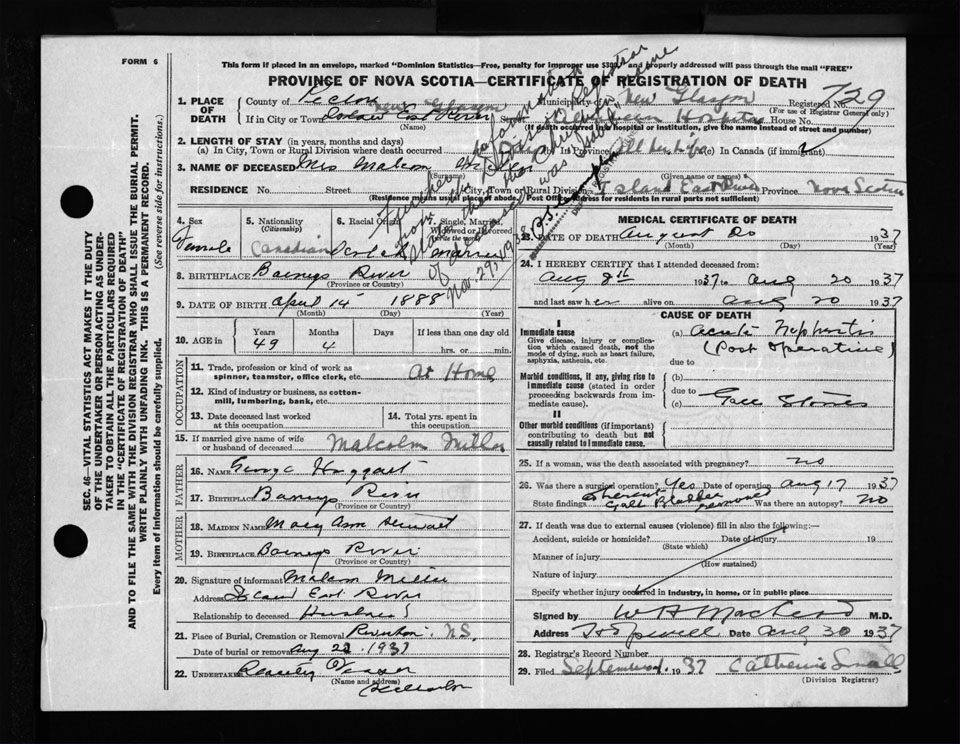 FORM 6
This form if placed in an envelope, marked "Dominion Statistics—Free, penalty for improper use $300," and properly addressed will pass through the mail "FREE"
PROVINCE OF NOVA SCOTIA—CERTIFICATE OF REGISTRATION OF DEATH
729
1. PLACE OF DEATH
County of Pictou Municipality of New Glasgow Registered No.
(For use of Registrar General only)
If in City or Town Island East River New Glasgow Aberdeen Hospital House No.
(Name) (If death occurred in a hospital or institution, give the name instead of street and number)
2. LENGTH OF STAY (in years, months and days)
(a) In City, Town or Rural Division where death occurred All her life (c) In Canada (if immigrant)
3. NAME OF DECEASED Mrs Malcom
(Surname) (Given name or names)
RESIDENCE No. Street City, Town or Rural Division Island East River Province Nova Scotia
(Residence means usual place of abode. Post Office address for residents in rural parts not sufficient)
4. Sex Female
5. Nationality (Citizenship) Canadian
6. Racial Origin
7. Single, Married, Widowed or Divorced (Write the word) Married
8. BIRTHPLACE Barneys River
(Province or Country)
9. DATE OF BIRTH April 14 1888
(Month) (Day) (Year)
10. AGE in Years Months Days If less than one day old
49 4 hrs. or min.
OCCUPATION
11. Trade, profession or kind of work as spinner, teamster, office clerk, etc. At Home
12. Kind of industry or business, as cotton-mill, lumbering, bank, etc.
13. Date deceased last worked at this occupation
14. Total yrs. spent in this occupation
15. If married give name of wife or husband of deceased Malcolm Miller
FATHER
16. NAME George Haggart
17. BIRTHPLACE Barneys River
(Province or Country)
MOTHER
18. MAIDEN NAME Mary Ann Stewart
19. BIRTHPLACE Barneys River
(Province or Country)
20. Signature of informant Malcom Miller
Address Island East River
Relationship to deceased Husband
21. Place of Burial, Cremation or Removal Riverton N.S.
Date of burial or removal Aug 22 1937
22. UNDERTAKER Fraser
(Name and address)
Stellarton
MEDICAL CERTIFICATE OF DEATH
23. DATE OF DEATH August 20 1937
(Month) (Day)
24. I HEREBY CERTIFY that I attended deceased from:
Aug 8th 1937 to Aug 20 1937
and last saw her alive on Aug 20 1937
CAUSE OF DEATH
I
Immediate cause
Give disease, injury or complication which caused death, not the mode of dying, such as heart failure, asphyxia, asthenia, etc.
(a) Acute Nephritis
(Post Operative)
due to
Morbid conditions, if any, giving rise to immediate cause (stated in order proceeding backwards from immediate cause).
(b)
due to
(c) Gall Stones
II
Other morbid conditions (if important) contributing to death but not causally related to immediate cause.
25. If a woman, was the death associated with pregnancy? no
26. Was there a surgical operation? Yes Date of operation Aug 17 1937
State findings Gall Bladder removed Was there an autopsy? no
27. If death was due to external causes (violence) fill in also the following:—
Accident, suicide or homicide? Date of injury 19
(State which)
Manner of injury
(How sustained)
Nature of injury
Specify whether injury occurred in industry, in home, or in public place
Signed by W H MacLeod M.D.
Address Hopewell Date Aug 30 1937
28. Registrar's Record Number
29. Filed September 1 1937 Catherine Small
(Division Registrar)
Nov. 29, 19
SEC. 46—VITAL STATISTICS ACT MAKES IT THE DUTY
OF THE UNDERTAKER OR PERSON ACTING AS UNDER-
TAKER TO OBTAIN ALL THE PARTICULARS REQUIRED
IN THE "CERTIFICATE OF REGISTRATION OF DEATH"
AND TO FILE THE SAME WITH THE DIVISION REGISTRAR WHO SHALL ISSUE THE BURIAL PERMIT.
WRITE PLAINLY WITH UNFADING INK. THIS IS A PERMANENT RECORD.
Every item of Information should be carefully supplied. (See reverse side for instructions.)